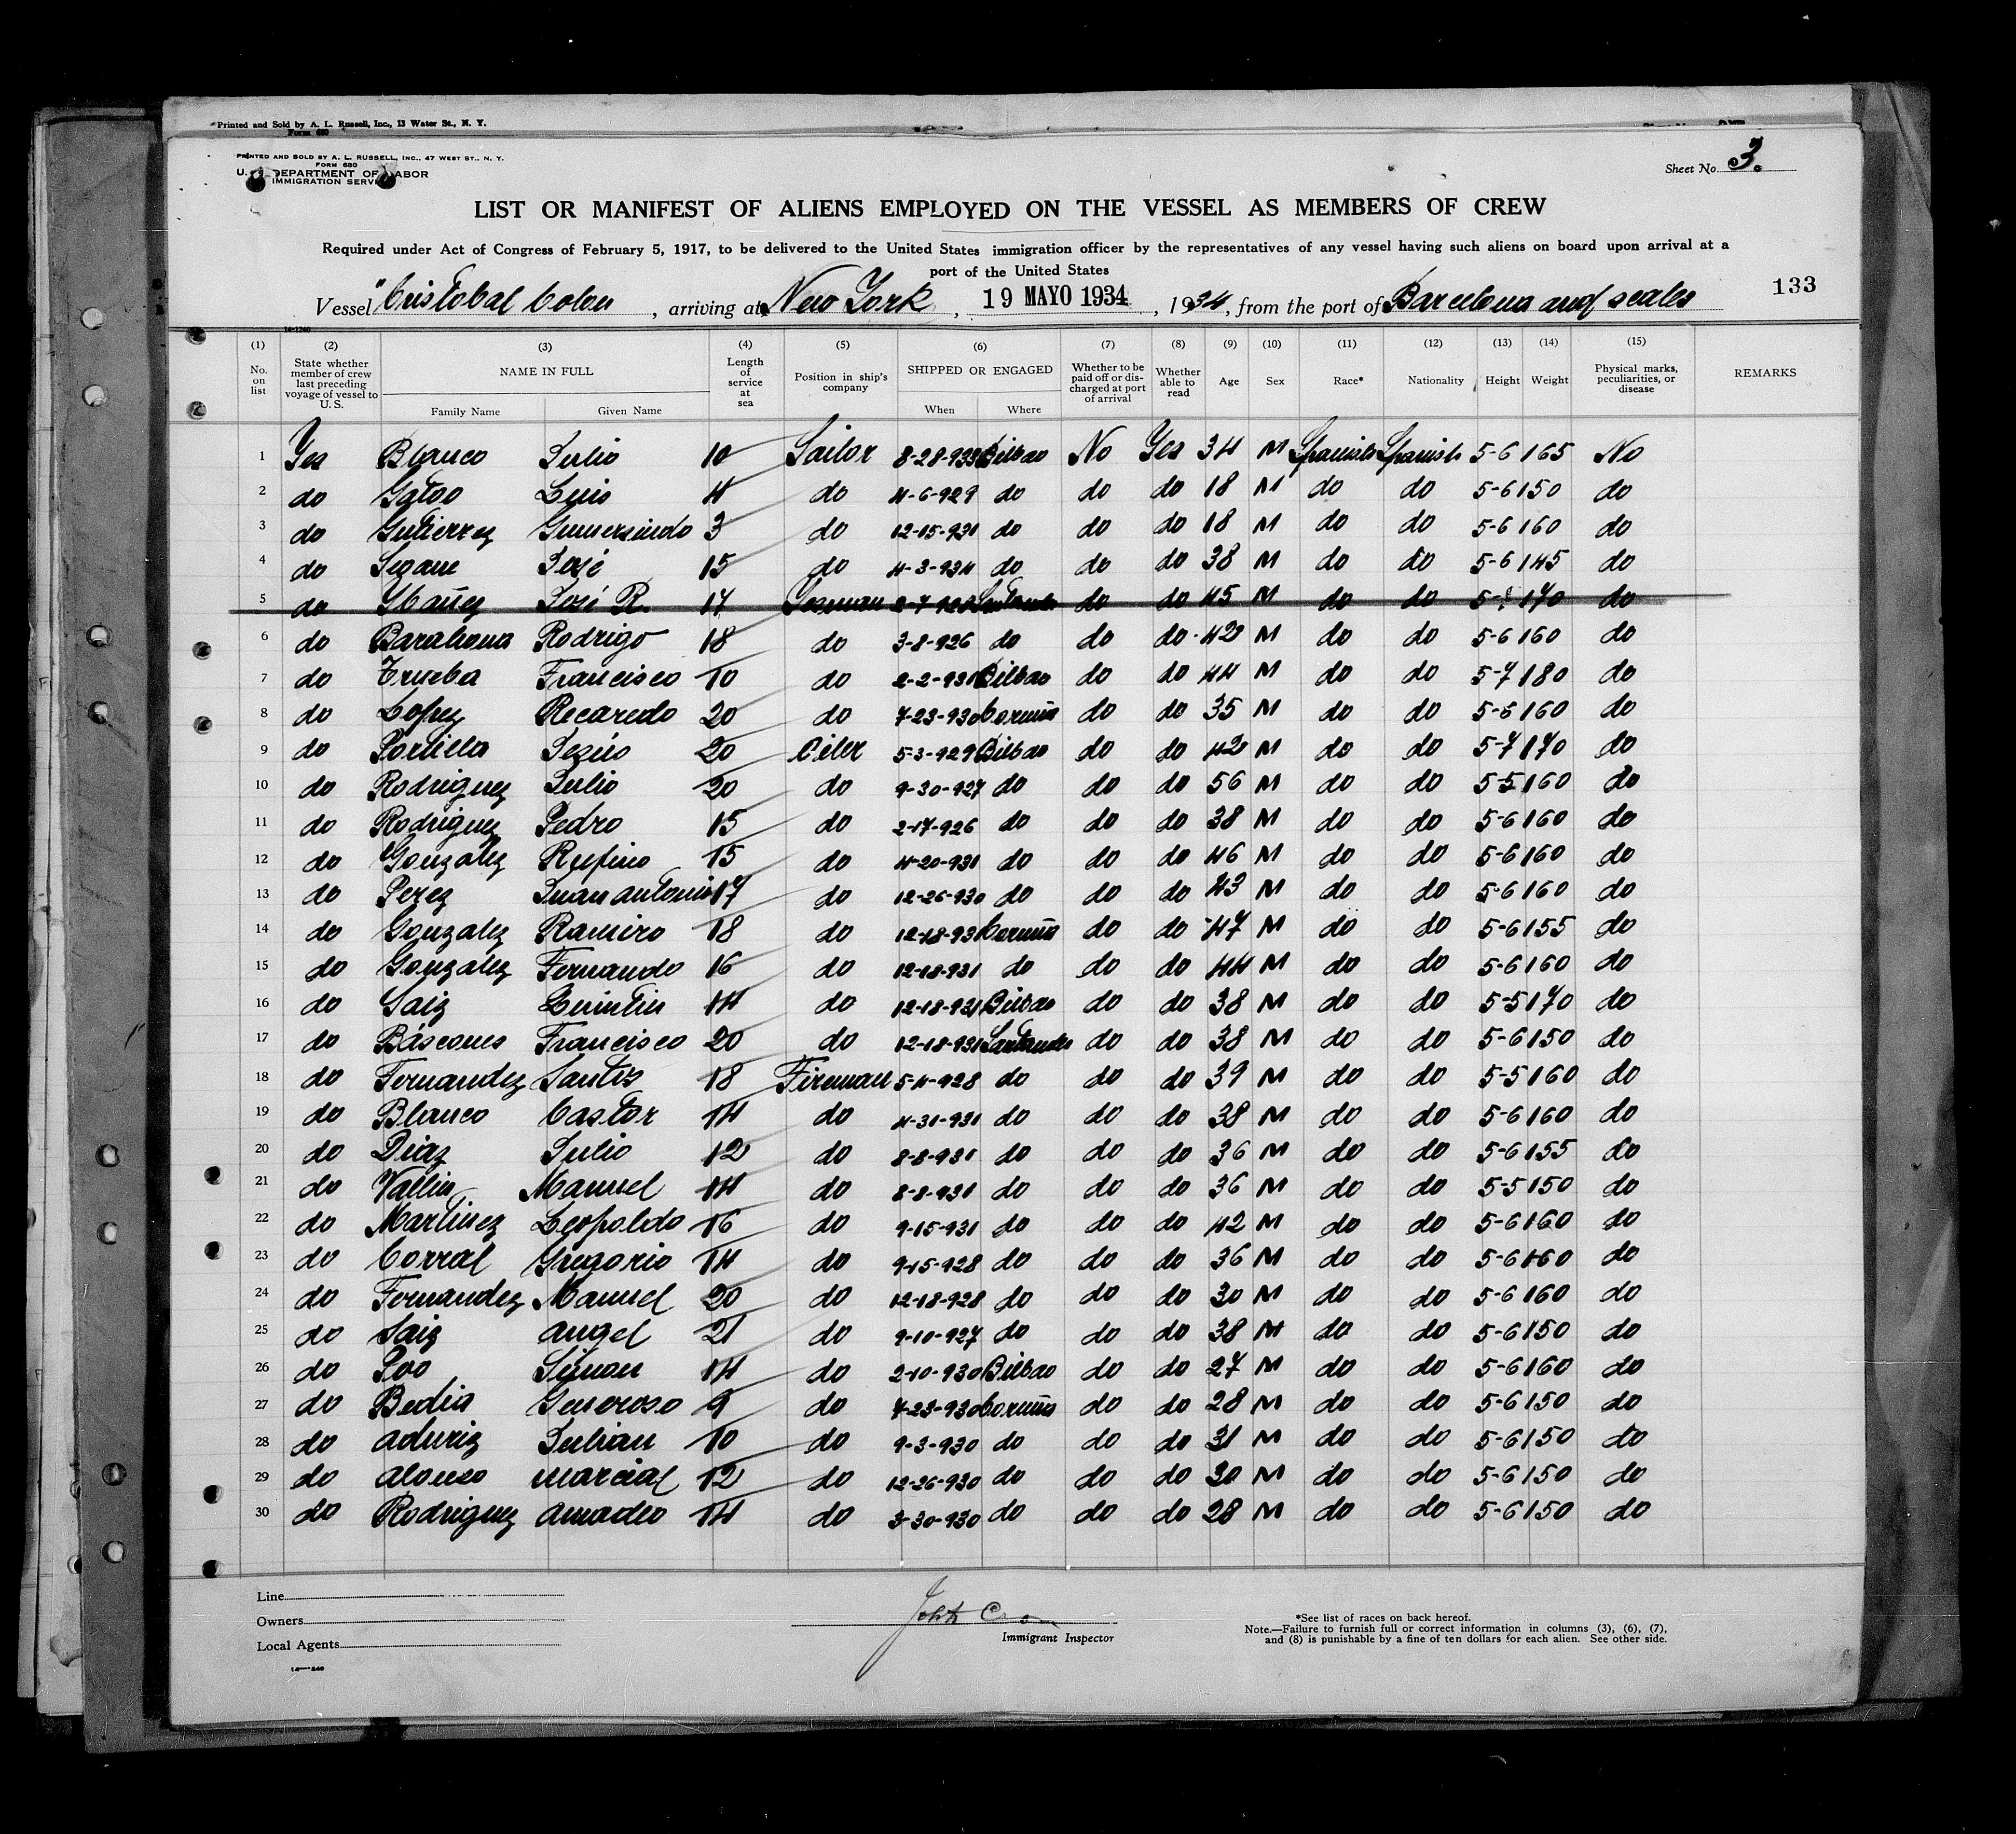 Printed and Sold by A. L. Russell, Inc., 13 Water St., N. Y.
Form 680
PRINTED AND SOLD BY A. L. RUSSELL, INC., 47 WEST ST., N. Y.
FORM 680
U. S. DEPARTMENT OF LABOR
IMMIGRATION SERVICE
Sheet No. 3.
LIST OR MANIFEST OF ALIENS EMPLOYED ON THE VESSEL AS MEMBERS OF CREW
Required under Act of Congress of February 5, 1917, to be delivered to the United States immigration officer by the representatives of any vessel having such aliens on board upon arrival at a
port of the United States
133
Vessel "Cristobal Colon, arriving at New York, 19 MAYO 1934, 1934, from the port of Barcelona and scales
14-1240
(1) (2) (3) (4) (5) (6) (7) (8) (9) (10) (11) (12) (13) (14) (15)
No. on list State whether member of crew last preceding voyage of vessel to U. S. NAME IN FULL Length of service at sea Position in ship's company SHIPPED OR ENGAGED Whether to be paid off or discharged at port of arrival Whether able to read Age Sex Race* Nationality Height Weight Physical marks, peculiarities, or disease REMARKS
Family Name Given Name When Where
1 Yes Blanco Julio 10 Sailor 8-28-933 Bilbao No Yes 34 M Spanish Spanish 5-6 165 No
2 do Gatoo Luis 4 do 4-6-929 do do do 18 M do do 5-6 150 do
3 do Gutierrez Gumersindo 3 do 12-15-931 do do do 18 M do do 5-6 160 do
4 do Seoane José 15 do 4-3-934 do do do 38 M do do 5-6 145 do
5 do Ibañez José R. 17 do do 45 M do do 170 do
6 do Barahona Rodrigo 18 do 3-8-926 do do do 42 M do do 5-6 160 do
7 do Trueba Francisco 10 do 2-2-931 Bilbao do do 44 M do do 5-7 180 do
8 do Lopez Recaredo 20 do 7-23-930 Coruña do do 35 M do do 5-6 160 do
9 do Portilla Jesús 20 Oiler 5-3-929 Bilbao do do 42 M do do 5-7 170 do
10 do Rodriguez Julio 20 do 9-30-927 do do do 56 M do do 5-5 160 do
11 do Rodriguez Pedro 15 do 2-17-926 do do do 38 M do do 5-6 160 do
12 do Gonzalez Rufino 15 do 4-20-931 do do do 46 M do do 5-6 160 do
13 do Perez Juan antonio 17 do 12-26-930 do do do 43 M do do 5-6 160 do
14 do Gonzalez Ramiro 18 do 12-18-931 Coruña do do 47 M do do 5-6 155 do
15 do Gonzalez Fernando 16 do 12-18-931 do do do 44 M do do 5-6 160 do
16 do Saiz Quintin 14 do 12-18-931 Bilbao do do 38 M do do 5-5 170 do
17 do Báscones Francisco 20 do 12-18-931 Santander do do 38 M do do 5-6 150 do
18 do Fernandez Santos 18 Fireman 5-4-928 do do do 39 M do do 5-5 160 do
19 do Blanco Castor 14 do 4-31-931 do do do 38 M do do 5-6 160 do
20 do Diaz Julio 12 do 8-8-931 do do do 36 M do do 5-6 155 do
21 do Vallin Manuel 14 do 8-8-931 do do do 36 M do do 5-5 150 do
22 do Martinez Leopoldo 16 do 9-15-931 do do do 42 M do do 5-6 160 do
23 do Corral Gregorio 14 do 9-15-928 do do do 36 M do do 5-6 160 do
24 do Fernandez Manuel 20 do 12-18-928 do do do 30 M do do 5-6 160 do
25 do Saiz angel 21 do 9-10-927 do do do 38 M do do 5-6 150 do
26 do Poo Simon 14 do 2-10-930 Bilbao do do 27 M do do 5-6 160 do
27 do Bedia Generoso 9 do 7-23-930 Coruña do do 28 M do do 5-6 150 do
28 do aduriz Julian 10 do 9-3-930 do do do 31 M do do 5-6 150 do
29 do alonso marcial 12 do 12-26-930 do do do 30 M do do 5-6 150 do
30 do Rodriguez amadeo 14 do 3-30-930 do do do 28 M do do 5-6 150 do
Line
Owners
Local Agents
John
Immigrant Inspector
*See list of races on back hereof.
Note.—Failure to furnish full or correct information in columns (3), (6), (7),
and (8) is punishable by a fine of ten dollars for each alien. See other side.